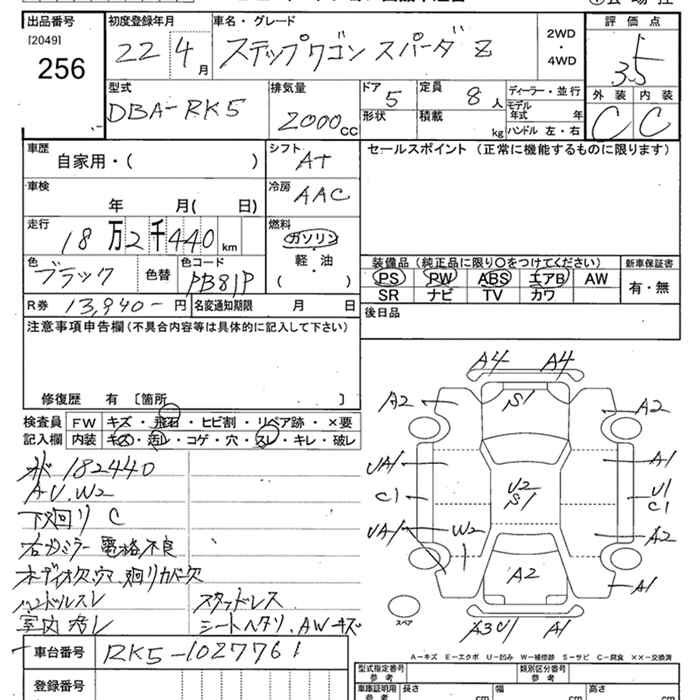 出品番号 初度登録年月 車名・グレード 評価点
[2049]
256
22 4月 ステップワゴン スパーダ Z
2WD・4WD
3.5
外装 内装
C C
型式 排気量 ドア 定員 ディーラー・並行
DBA-RK5 2000cc 5 8人
モデル年式 年
形状 積載 kg ハンドル 左・右
車歴 シフト セールスポイント (正常に機能するものに限ります)
自家用・( ) AT
車検 冷房
年 月( 日) AAC
走行 燃料
18万2千440km ガソリン
軽・油
( )
色 色替 色コード
ブラック PB81P
装備品 (純正品に限り〇をつけてください) 新車保証書
PS PW ABS エアB AW 有・無
SR ナビ TV カワ
R券 13,940-円 名変通知期限 月 日
後日品
注意事項申告欄(不具合内容等は具体的に記入して下さい)
修復歴 有 〔箇所 〕
検査員 FW キズ・飛石・ヒビ割・リペア跡・×要
記入欄 内装 キズ・汚レ・コゲ・穴・スレ・キレ・破レ
182440
AU.W2
下廻リ C
右ドアミラー電格不良
オーディオ欠
ハンドルスレ スタッドレス
室内汚レ シートヘタリ.AWキズ
A4 A4
A2 S1 A2
UA1 A1
C1 U2 U1
S1 C1
UA1 W2 A2
A2 A1
スペア
A3U1 A1
A-キズ E-エクボ U-凹み W-補修跡 S-サビ C-腐食 ××-交換済
車台番号 RK5-1027761
登録番号
型式指定番号 参考 類別区分番号 参考
車庫証明用 参考 長さ cm 幅 cm 高さ cm